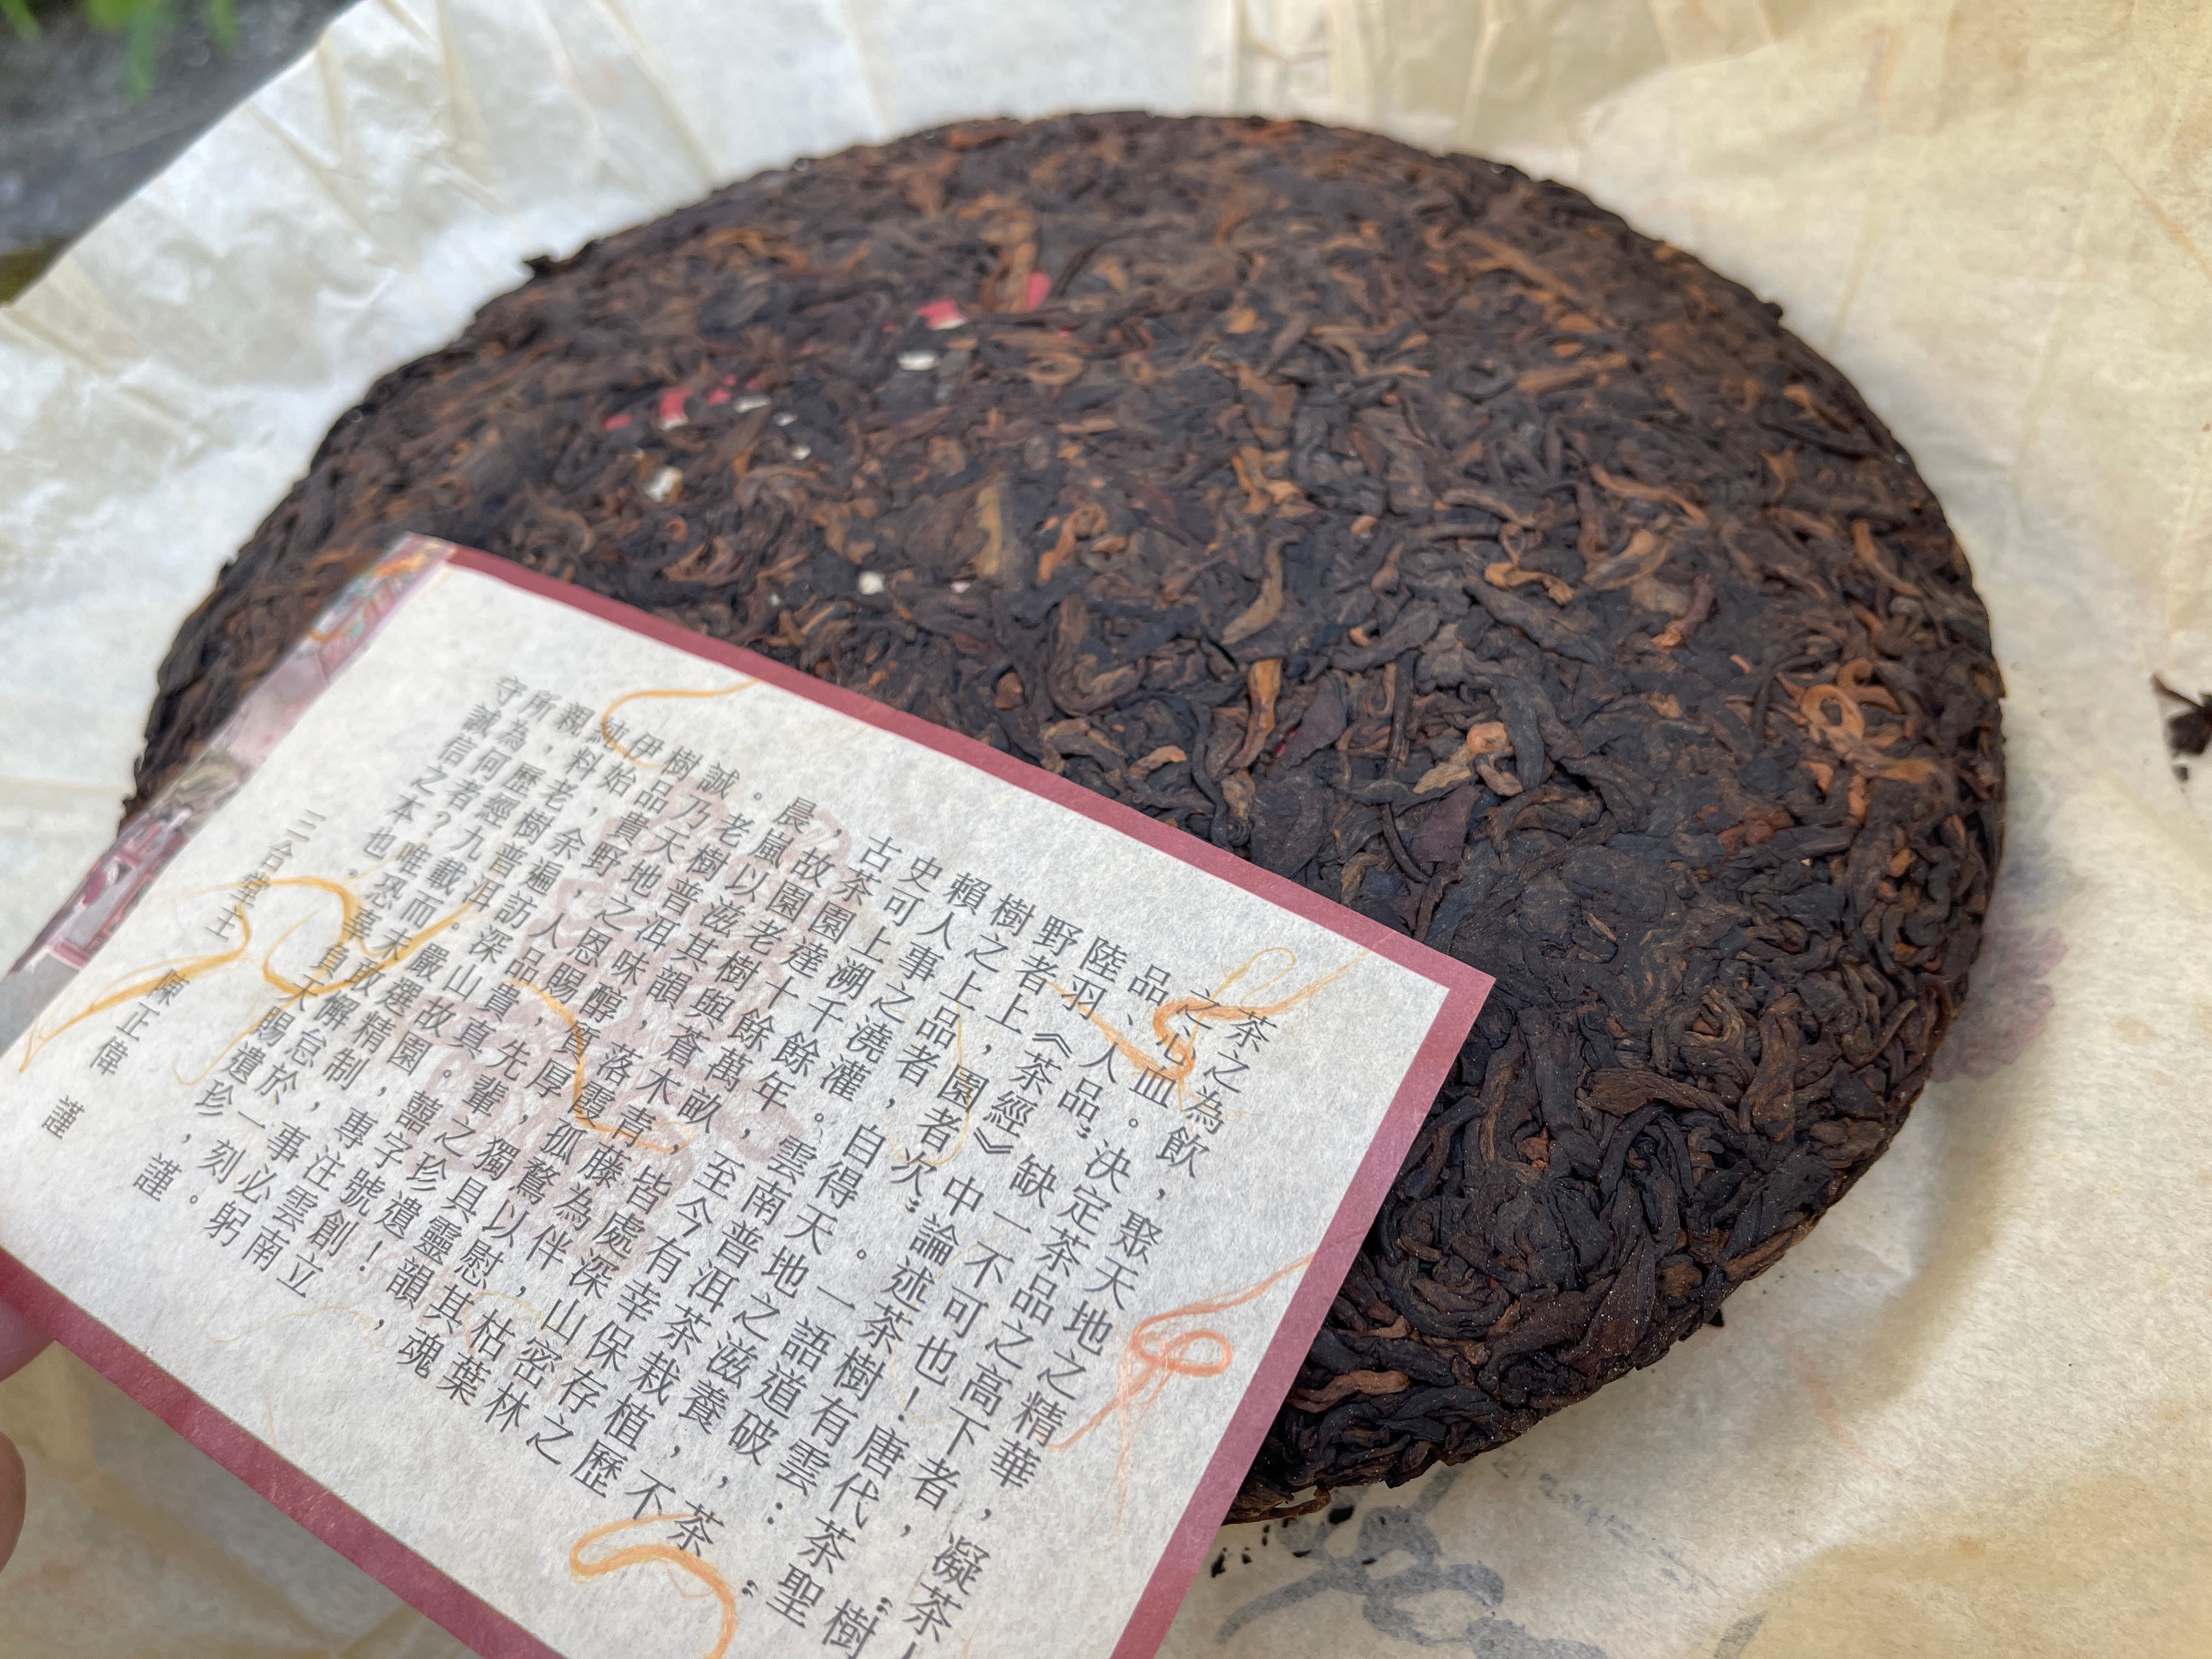 茶之為飲，聚天地之精華，凝茶
之心血。決定茶品之高下者，〝樹
品、人品〞缺一不可也！唐代茶聖
陸羽《茶經》中論述茶樹有雲：〝
野者上，園者次〞。一語道破：茶
樹之上品者，自得天地之滋養，不
賴人事之澆灌。雲南普洱茶栽植歷
史可上溯千餘年，至今有幸保存之
古茶園達十餘萬畝，皆處深山密林
，故園老樹與蒼木青藤為伴，枯葉
晨嵐以滋其韻，落霞孤鶩以慰其魂
。老樹普洱味醇，質厚，獨具靈韻，
誠乃天地之恩賜，先輩之珍遺！
樹品貴野，人品貴真。囍字號創立
伊始，余遍訪深山故園，專注雲南
純料老樹普洱。嚴選精制，事必躬
親，歷經九載而未敢懈怠於一刻。
所為何者？唯恐辜負天賜遺珍，謹
守誠信之本也。
三合堂主 陳正偉 謹